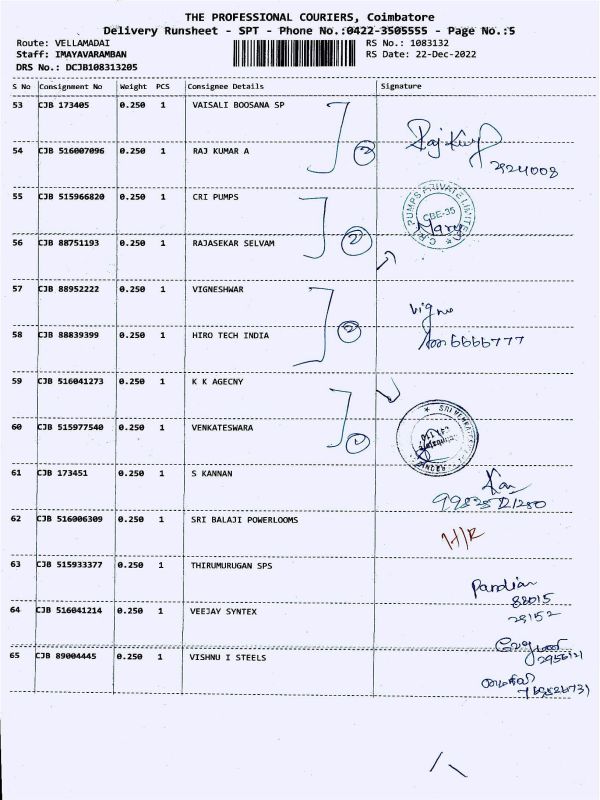 THE PROFESSIONAL COURIERS, Coimbatore
Delivery Runsheet - SPT - Phone No.:0422-3505555 - Page No.:5
Route: VELLAMADAI RS No.: 1083132
Staff: IMAYAVARAMBAN RS Date: 22-Dec-2022
DRS No.: DCJB108313205
S No Consignment No Weight PCS Consignee Details Signature
53 CJB 173405 0.250 1 VAISALI BOOSANA SP
54 CJB 516007096 0.250 1 RAJ KUMAR A
2 Rajkumar
2924008
55 CJB 515966820 0.250 1 CRI PUMPS
C.R.I. PUMPS PRIVATE LIMITED
CBE-35
56 CJB 88751193 0.250 1 RAJASEKAR SELVAM
2
57 CJB 88952222 0.250 1 VIGNESHWAR
58 CJB 88839399 0.250 1 HIRO TECH INDIA
2
6666777
59 CJB 516041273 0.250 1 K K AGECNY
60 CJB 515977540 0.250 1 VENKATESWARA
1
61 CJB 173451 0.250 1 S KANNAN
62 CJB 516006309 0.250 1 SRI BALAJI POWERLOOMS
H/R
63 CJB 515933377 0.250 1 THIRUMURUGAN SPS
Pandian
88015
29152
64 CJB 516041214 0.250 1 VEEJAY SYNTEX
65 CJB 89004445 0.250 1 VISHNU I STEELS